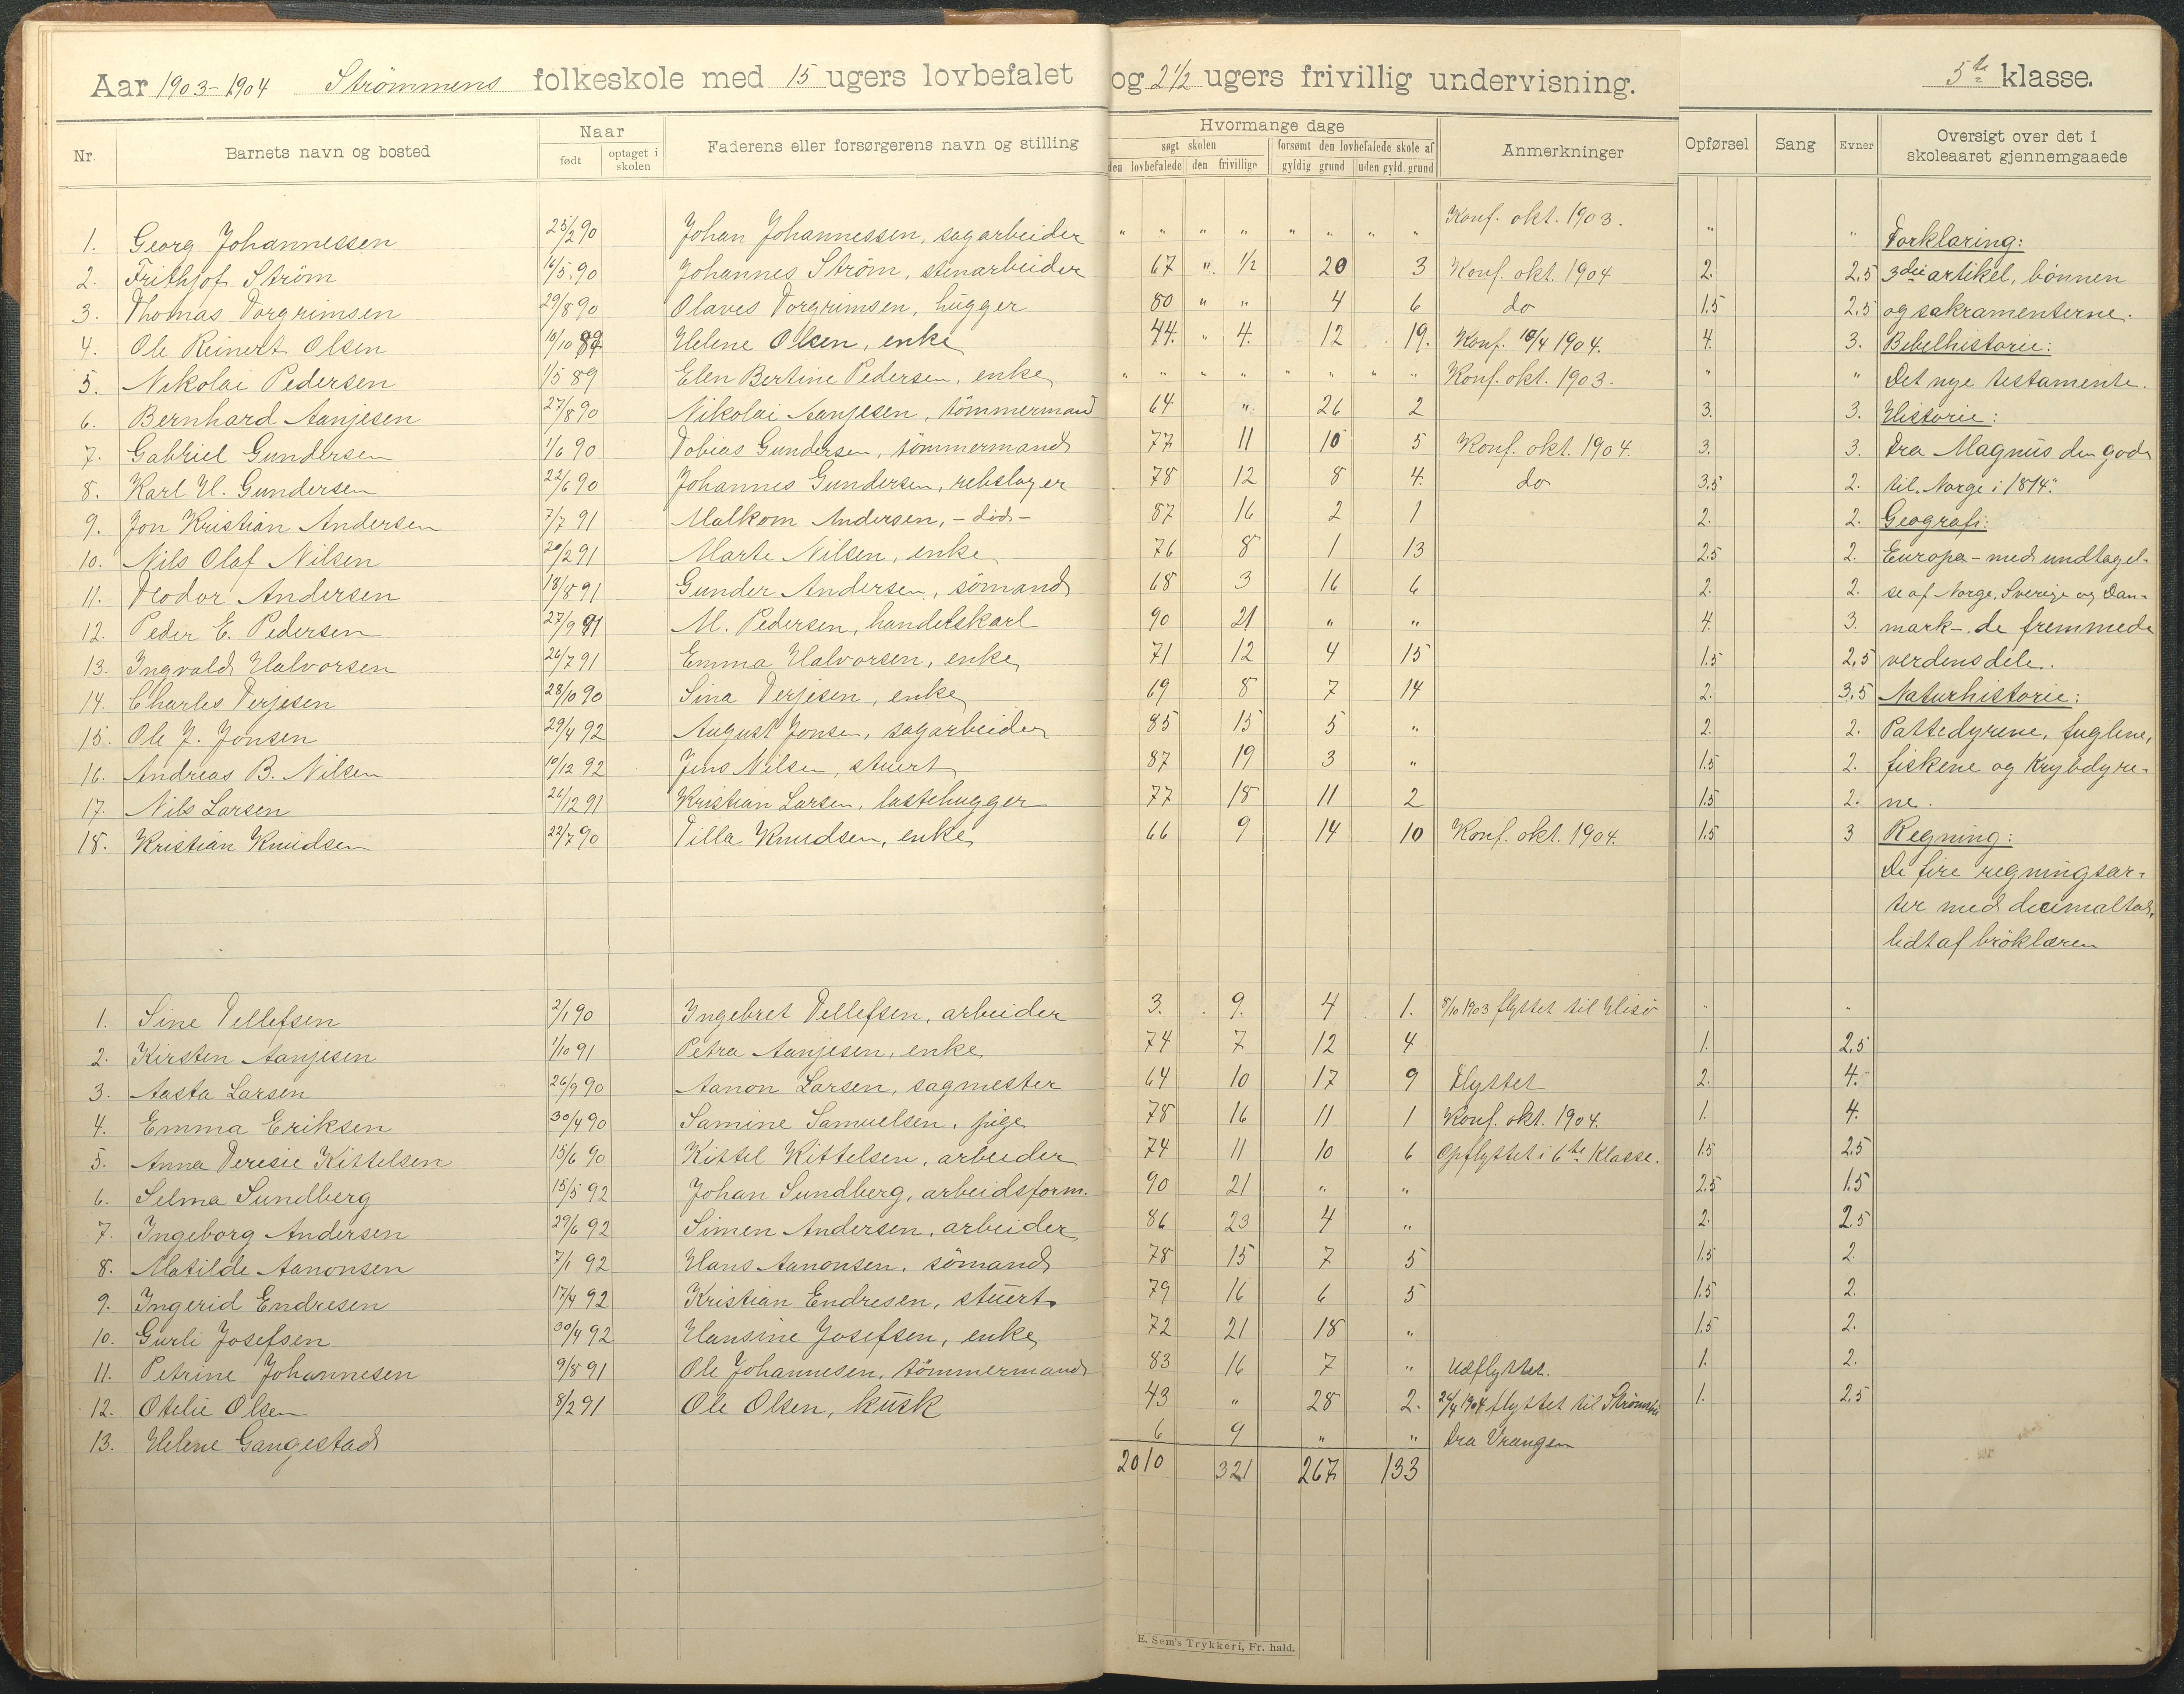 Aar 1903-1904 Strömmens folkeskole med 15 ugers lovbefalet og 2 1/2 ugers frivillig undervisning. 5te klasse.
Nr. Barnets navn og bosted Naar født optaget i skolen Faderens eller forsørgerens navn og stilling Hvormange dage søgt skolen den lovbefalede den frivillige forsømt den lovbefalede skole af gyldig grund uden gyld. grund Anmerkninger Opførsel Sang Evner Oversigt over det i skoleaaret gjennemgaaede
1. Georg Johannessen 25/2 90 Johan Johannessen, sagarbeider " " " " " " " " Konf. okt. 1903. " " Forklaring:
2. Frithjof Ström 16/5 90 Johannes Ström, stenarbeider 67 " 1/2 20 3 Konf. okt. 1904 2. 2,5 3die artikel, bönnen
3. Thomas Torgrimsen 29/8 90 Olaves Torgrimsen, hugger 80 " " 4 6 do 1.5 2.5 og sakramenterne.
4. Ole Reinert Olsen 10/10 89 Helene Olsen, enke 44. " 4. 12 19. Konf. 10/4 1904. 4. 3. Bibelhistorie:
5. Nikolai Pedersen 1/5 89 Elen Bertine Pedersen, enke " " " " " " " " Konf. okt. 1903. " " Det nye testamente.
6. Bernhard Aanjesen 27/8 90 Nikolai Aanjesen, tömmermand 64 " 26 2 3. 3. Historie:
7. Gabriel Gundersen 1/6 90 Tobias Gundersen, tömmermand 77 11 10 5 Konf. okt. 1904. 3. 3. Fra Magnus den gode
8. Karl H. Gundersen 22/6 90 Johannes Gundersen, rebslager 78 12 8 4. do 3.5 2. til "Norge i 1814".
9. Jon Kristian Andersen 7/7 91 Malkom Andersen, - död - 87 16 2 1 2. 2. Geografi:
10. Nils Olaf Nilsen 20/2 91 Marte Nilsen, enke 76 8 1 13 2.5 2. Europa - med undtagel-
11. Teodor Andersen 18/8 91 Gunder Andersen, sömand 68 3 16 6 2. 2. se af Norge, Sverige og Dan-
12. Peder E. Pedersen 27/9 91 M. Pedersen, handelskarl 90 21 " " 4. 3. mark -. de fremmede
13. Ingvald Halvorsen 26/7 91 Emma Halvorsen, enke 71 12 4 15 1.5 2,5 verdensdele.
14. Charles Terjesen 28/10 90 Sina Terjesen, enke 69 8 7 14 2. 3,5 Naturhistorie:
15. Ole J. Jonsen 29/4 92 August Jonsen, sagarbeider 85 15 5 " 2. 2. Pattedyrene, fuglene,
16. Andreas B. Nilsen 10/12 92 Jens Nilsen, stuert 87 19 3 " 1.5 2. fiskene og Krybdyre-
17. Nils Larsen 26/12 91 Kristian Larsen, lastehugger 77 18 11 2 1.5 2. ne.
18. Kristian Knudsen 22/7 90 Tilla Knudsen, enke 66 9 14 10 Konf. okt. 1904. 1.5 3 Regning:
De fire regningsar-
ter med decimaltal,
lidt af bröklæren
1. Sine Tellefsen 2/1 90 Ingebret Tellefsen, arbeider 3. 9. 4 1. 8/10 1903 flyttet til Hisö " "
2. Kirsten Aanjesen 1/10 91 Petra Aanjesen, enke 74 7 12 4 1. 2,5
3. Aasta Larsen 26/9 90 Aanon Larsen, sagmester 64 10 17 9 Flyttet 2. 4.
4. Emma Eriksen 30/4 90 Samine Samuelsen, pige 78 16 11 1 Konf. okt. 1904. 1. 4.
5. Anna Teresie Kittelsen 15/6 90 Kittel Kittelsen, arbeider 74 11 10 6 Opflyttet i 6te Klasse. 1.5 2.5
6. Selma Sundberg 15/5 92 Johan Sundberg, arbeidsform. 90 21 " " 2.5 1.5
7. Ingeborg Andersen 29/6 92 Simen Andersen, arbeider 86 23 4 " 2. 2.5
8. Matilde Aanonsen 7/1 92 Hans Aanonsen, sömand 78 15 7 5 1.5 2.
9. Ingerid Endresen 17/4 92 Kristian Endresen, stuert 79 16 6 5 1.5 2.
10. Gurli Josefsen 30/4 92 Hansine Josefsen, enke 72 21 18 " 1.5 2.
11. Petrine Johannesen 9/8 91 Ole Johannesen, tömmermand 83 16 7 " Udflyttet. 1. 2.
12. Otelie Olsen 8/2 91 Ole Olsen, kusk 43 " 28 2. 24/4 1904 flyttet til 1. 2.5
13. Helene Gangestad 6 9 " " Fra Vrangen
2010 321 267 133
E. Sem's Trykkeri, Fr. hald.